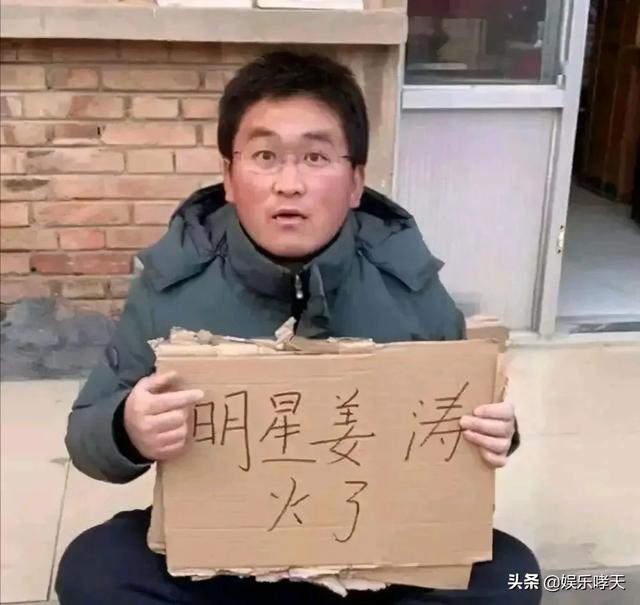 明星姜涛
火了
头条 @娱乐哮天